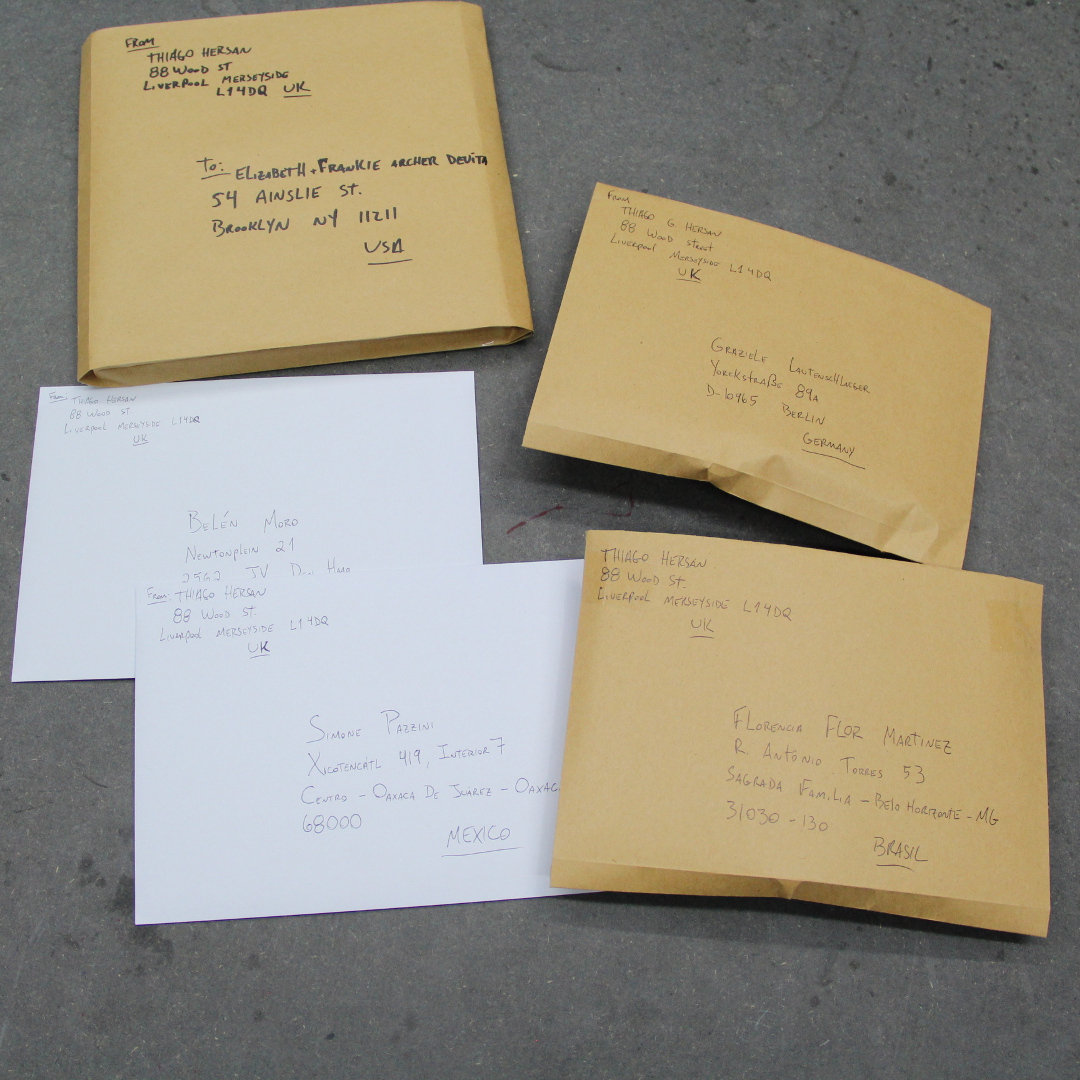 From
THIAGO HERSAN
88 WOOD ST
LIVERPOOL MERSEYSIDE
L1 4DQ UK
To: ELIZABETH + FRANKIE ARCHER DEVITA
54 AINSLIE ST.
BROOKLYN NY 11211
USA
From
THIAGO G HERSAN
88 WOOD STREET
LIVERPOOL MERSEYSIDE L1 4DQ
UK
GRAZIELE LAUTENSCHLAEGER
YORCKSTRAßE 89A
D-10965 BERLIN
GERMANY
From: THIAGO HERSAN
88 WOOD ST.
LIVERPOOL MERSEYSIDE L1 4DQ
UK
BELÉN MORO
NEWTONPLEIN 21
2562 JV
From: THIAGO HERSAN
88 WOOD ST.
LIVERPOOL MERSEYSIDE L1 4DQ
UK
SIMONE PAZZINI
XICOTENCÁTL 419, INTERIOR 7
CENTRO - OAXACA DE JUAREZ - OAXAC
68000
MEXICO
THIAGO HERSAN
88 WOOD ST.
LIVERPOOL MERSEYSIDE L1 4DQ
UK
FLORENCIA FLOR MARTINEZ
R. ANTÔNIO TORRES 53
SAGRADA FAMILIA - BELO HORIZONTE - MG
31030-130
BRASIL